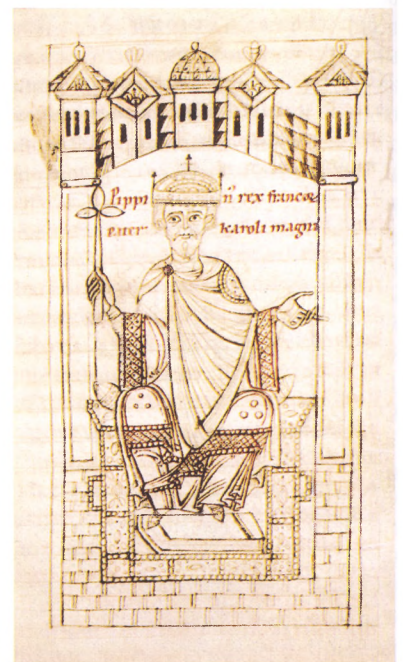 Pippi nꝰ rex francoꝝ
pater karoli magni